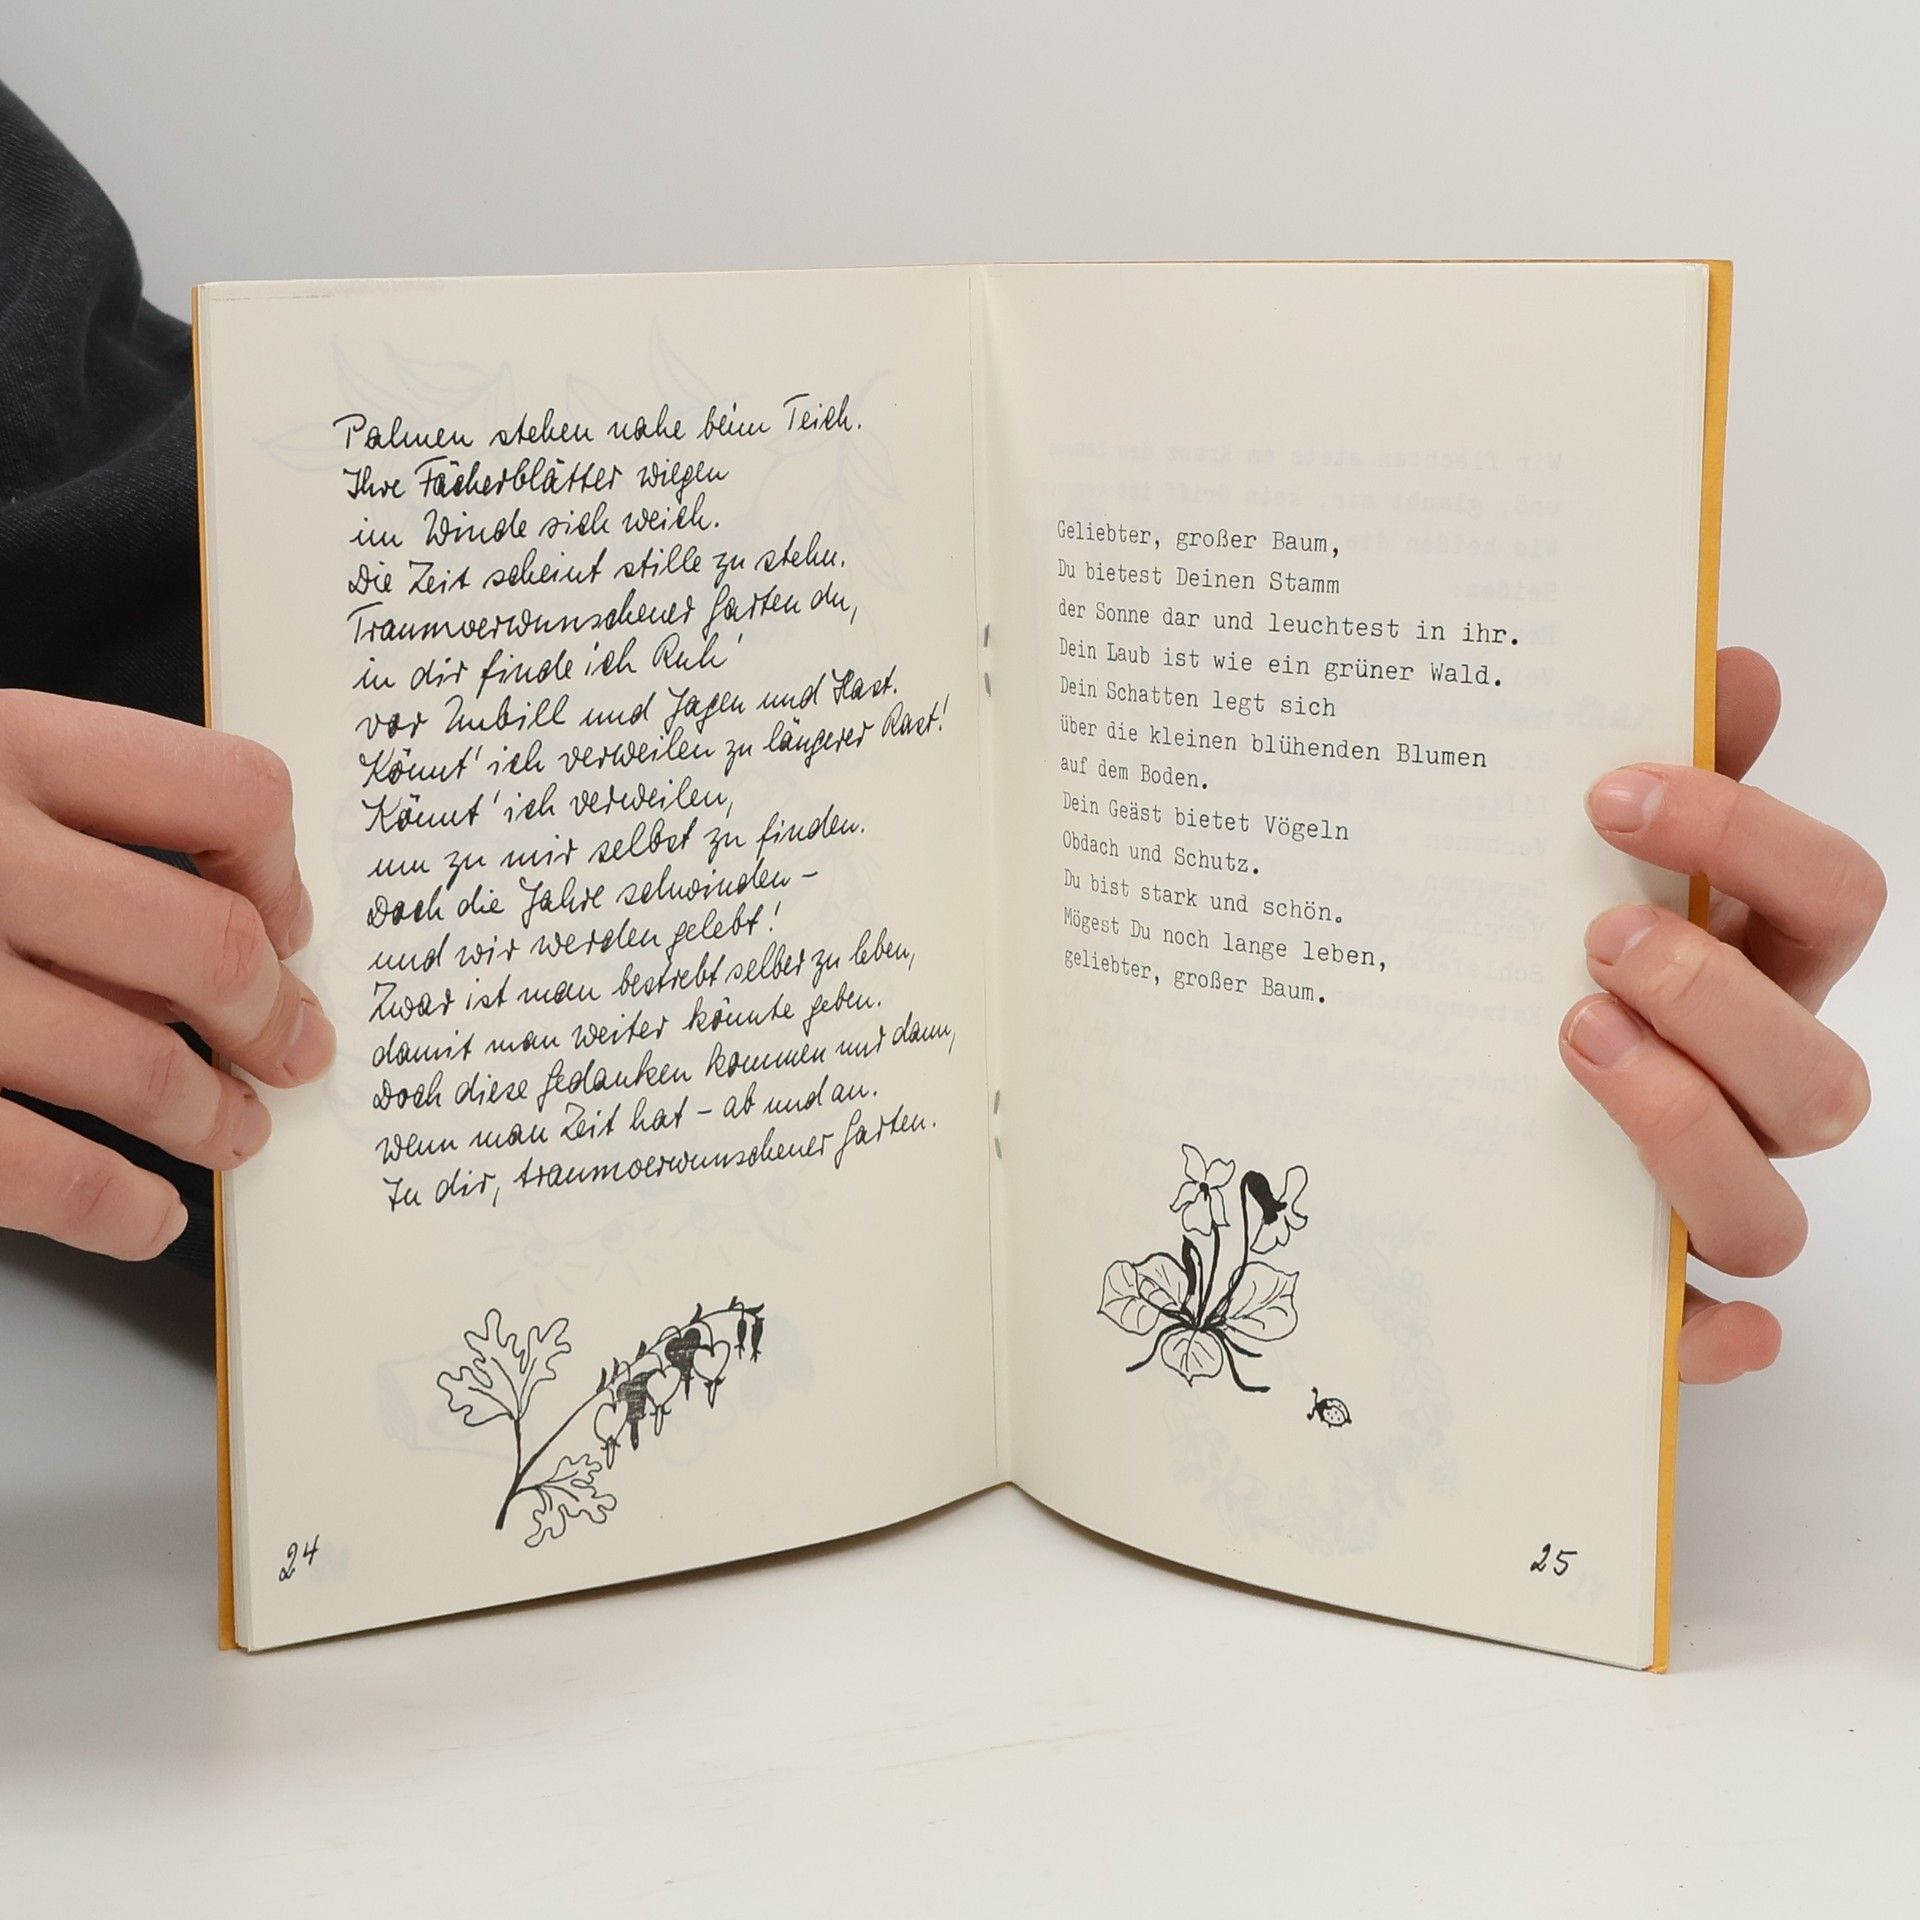 Palmen stehen nahe beim Teich.
Ihre Fächerblätter wiegen
im Winde sich weich.
Die Zeit scheint stille zu stehn.
Traumverwunschener Garten du,
in dir finde ich Ruh'
vor Unbill und Jagen und Hast.
Könnt' ich verweilen zu längerer Rast!
Könnt' ich verweilen,
um zu mir selbst zu finden.
Doch die Jahre schwinden –
und wir werden gelebt!
Zwar ist man bestrebt selber zu leben,
damit man weiter könnte geben.
Doch diese Gedanken kommen nur dann,
wenn man Zeit hat – ab und an.
In dir, traumverwunschener Garten.
24
Geliebter, großer Baum,
Du bietest Deinen Stamm
der Sonne dar und leuchtest in ihr.
Dein Laub ist wie ein grüner Wald.
Dein Schatten legt sich
über die kleinen blühenden Blumen
auf dem Boden.
Dein Geäst bietet Vögeln
Obdach und Schutz.
Du bist stark und schön.
Mögest Du noch lange leben,
geliebter, großer Baum.
25